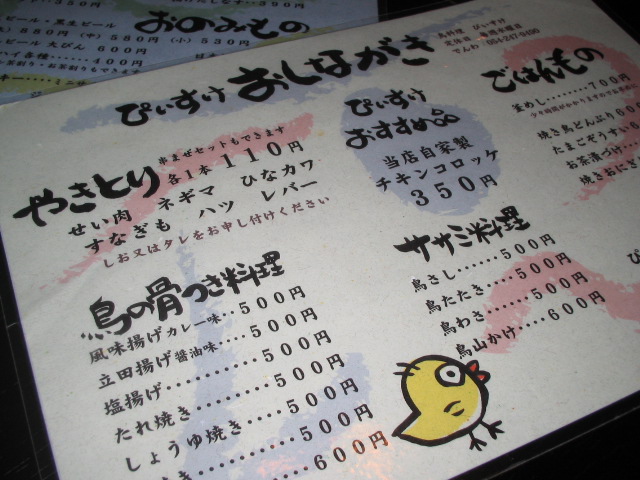 おのみもの
ビール・黒生ビール
(中) 580円 (小) 530円
ビール 大びん 600円
鳥料理 ぴぃすけ
ぴぃすけ おしながき
やきとり
串まぜセットもできます
各1本 110円
せい肉 ネギマ ひなカワ
すなぎも ハツ レバー
しお又はタレをお申し付けください
ぴぃすけ
おすすめ品
当店自家製
チキンコロッケ
350円
ごはんもの
釜めし……700円
焼き鳥どんぶり
たまごぞうすい
お茶漬づけ
焼きおにぎ
鳥の骨つき料理
風味揚げカレー味‥500円
立田揚げ醤油味‥‥500円
塩揚げ…………500円
たれ焼き…………500円
しょうゆ焼き……500円
き…………600円
ササミ料理
鳥さし……500円
鳥たたき…500円
鳥わさ……500円
鳥山かけ…600円